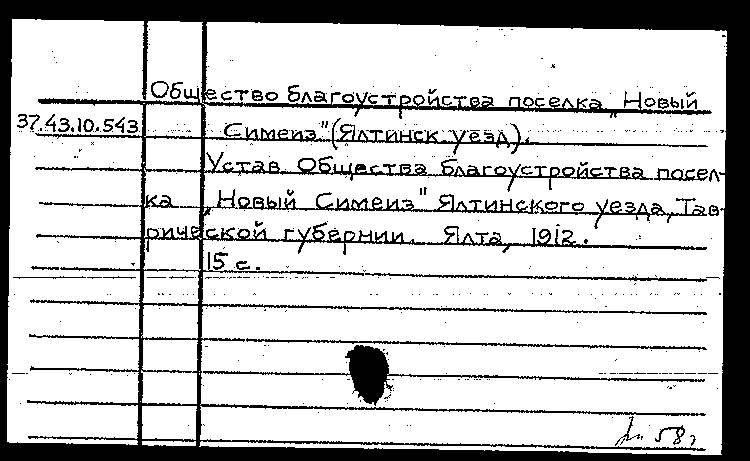 Общество благоустройства поселка „Новый
37.43.10.543 Симеиз" (Ялтинск. уезд).
Устав Общества благоустройства посел-
ка „Новый Симеиз" Ялтинского уезда, Тав-
рической губернии. Ялта, 1912.
15 с.
58 г